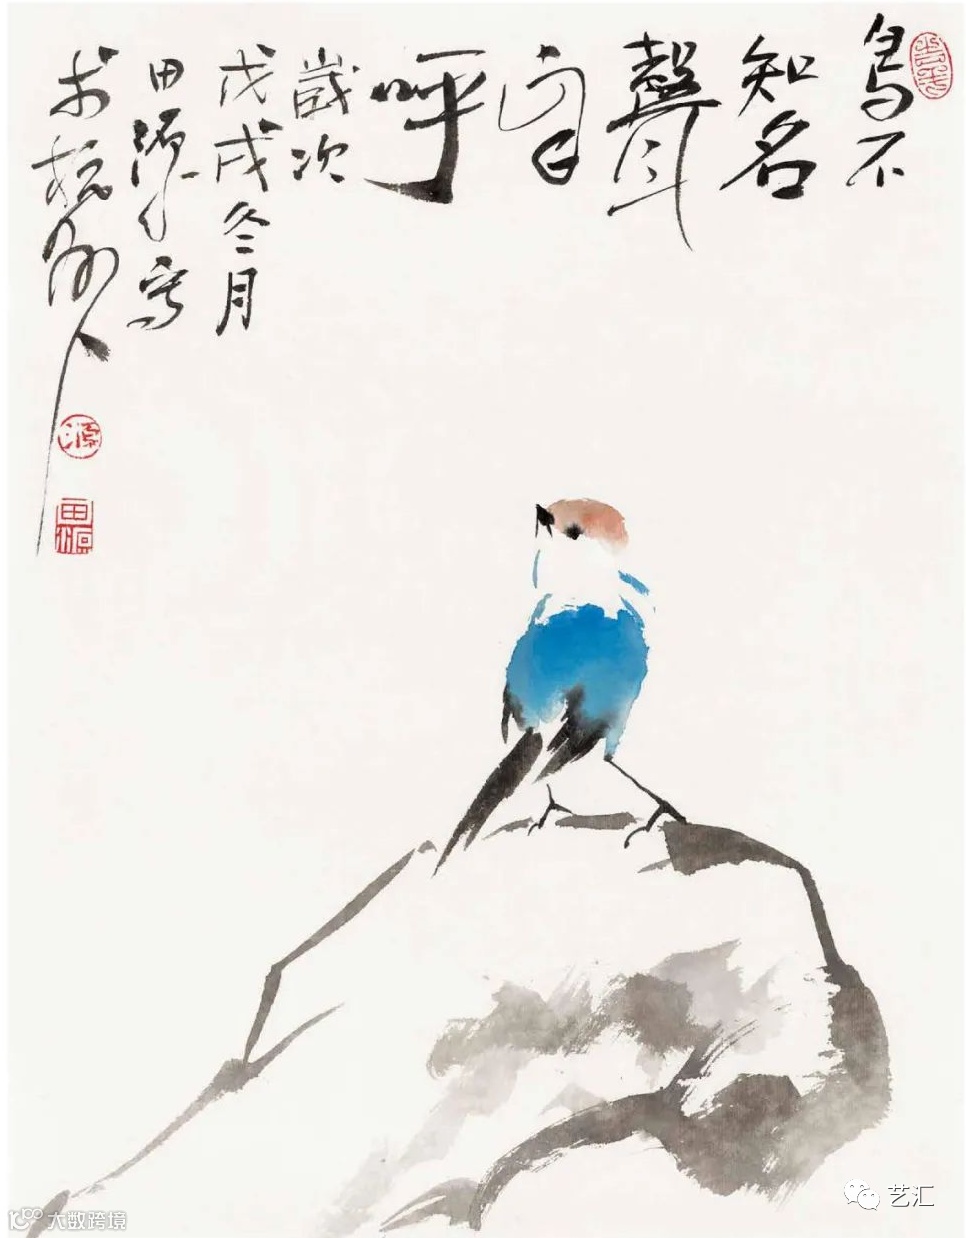 鳥不
知名
聲
自
呼
歲次
戊戌冬月
田源寫
於杭州
源
田源
艺汇
大数跨境